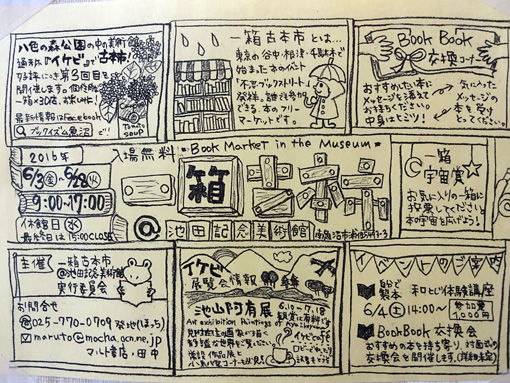 八色の森公園の中の美術館
通称『イケビ』で古本市!
好評につき第3回目を
開催します。個性的な
一箱×30店、お楽しみに!
最新情報はFacebook
ブックイズム魚沼 で!
一箱古本市とは…
東京の谷中・根津・千駄木で
始まったイベント
「不忍ブックストリート」
発祥。誰でも参加
できる、本のフリー
マーケットです。
Book Book
交換コーナー
おすすめしたい本に
メッセージを添えて
お持ちください。
中身はヒミツ!
気に入った
メッセージの
本を1冊
とってください。
2016年
6/3(金) 6/28(火)
9:00-17:00
休館日(水)
最終日は15:00CLOSE
入場無料
Book Market in the Museum
一箱古本市
@池田記念美術館
南魚沼市浦佐5493-3
一箱
宇宙賞
お気に入りの一箱に
投票してください。
本の宇宙を広げよう!
主催
一箱古本市
@池田記念美術館
実行委員会
お問合せ
025-770-0709 発地(ほっち)
maruto@mocha.ocn.ne.jp
マルト書店・田中
イケビ
展覧会情報
池山阿有展
6.10→7.18
イベントのご案内
自分で製本 和とじ体験講座
6/4(土)14:00〜
参加費
1,000円
BookBook交換会
おすすめの本を持ち寄り、対面式の
交換会を開催します。(詳細未定)